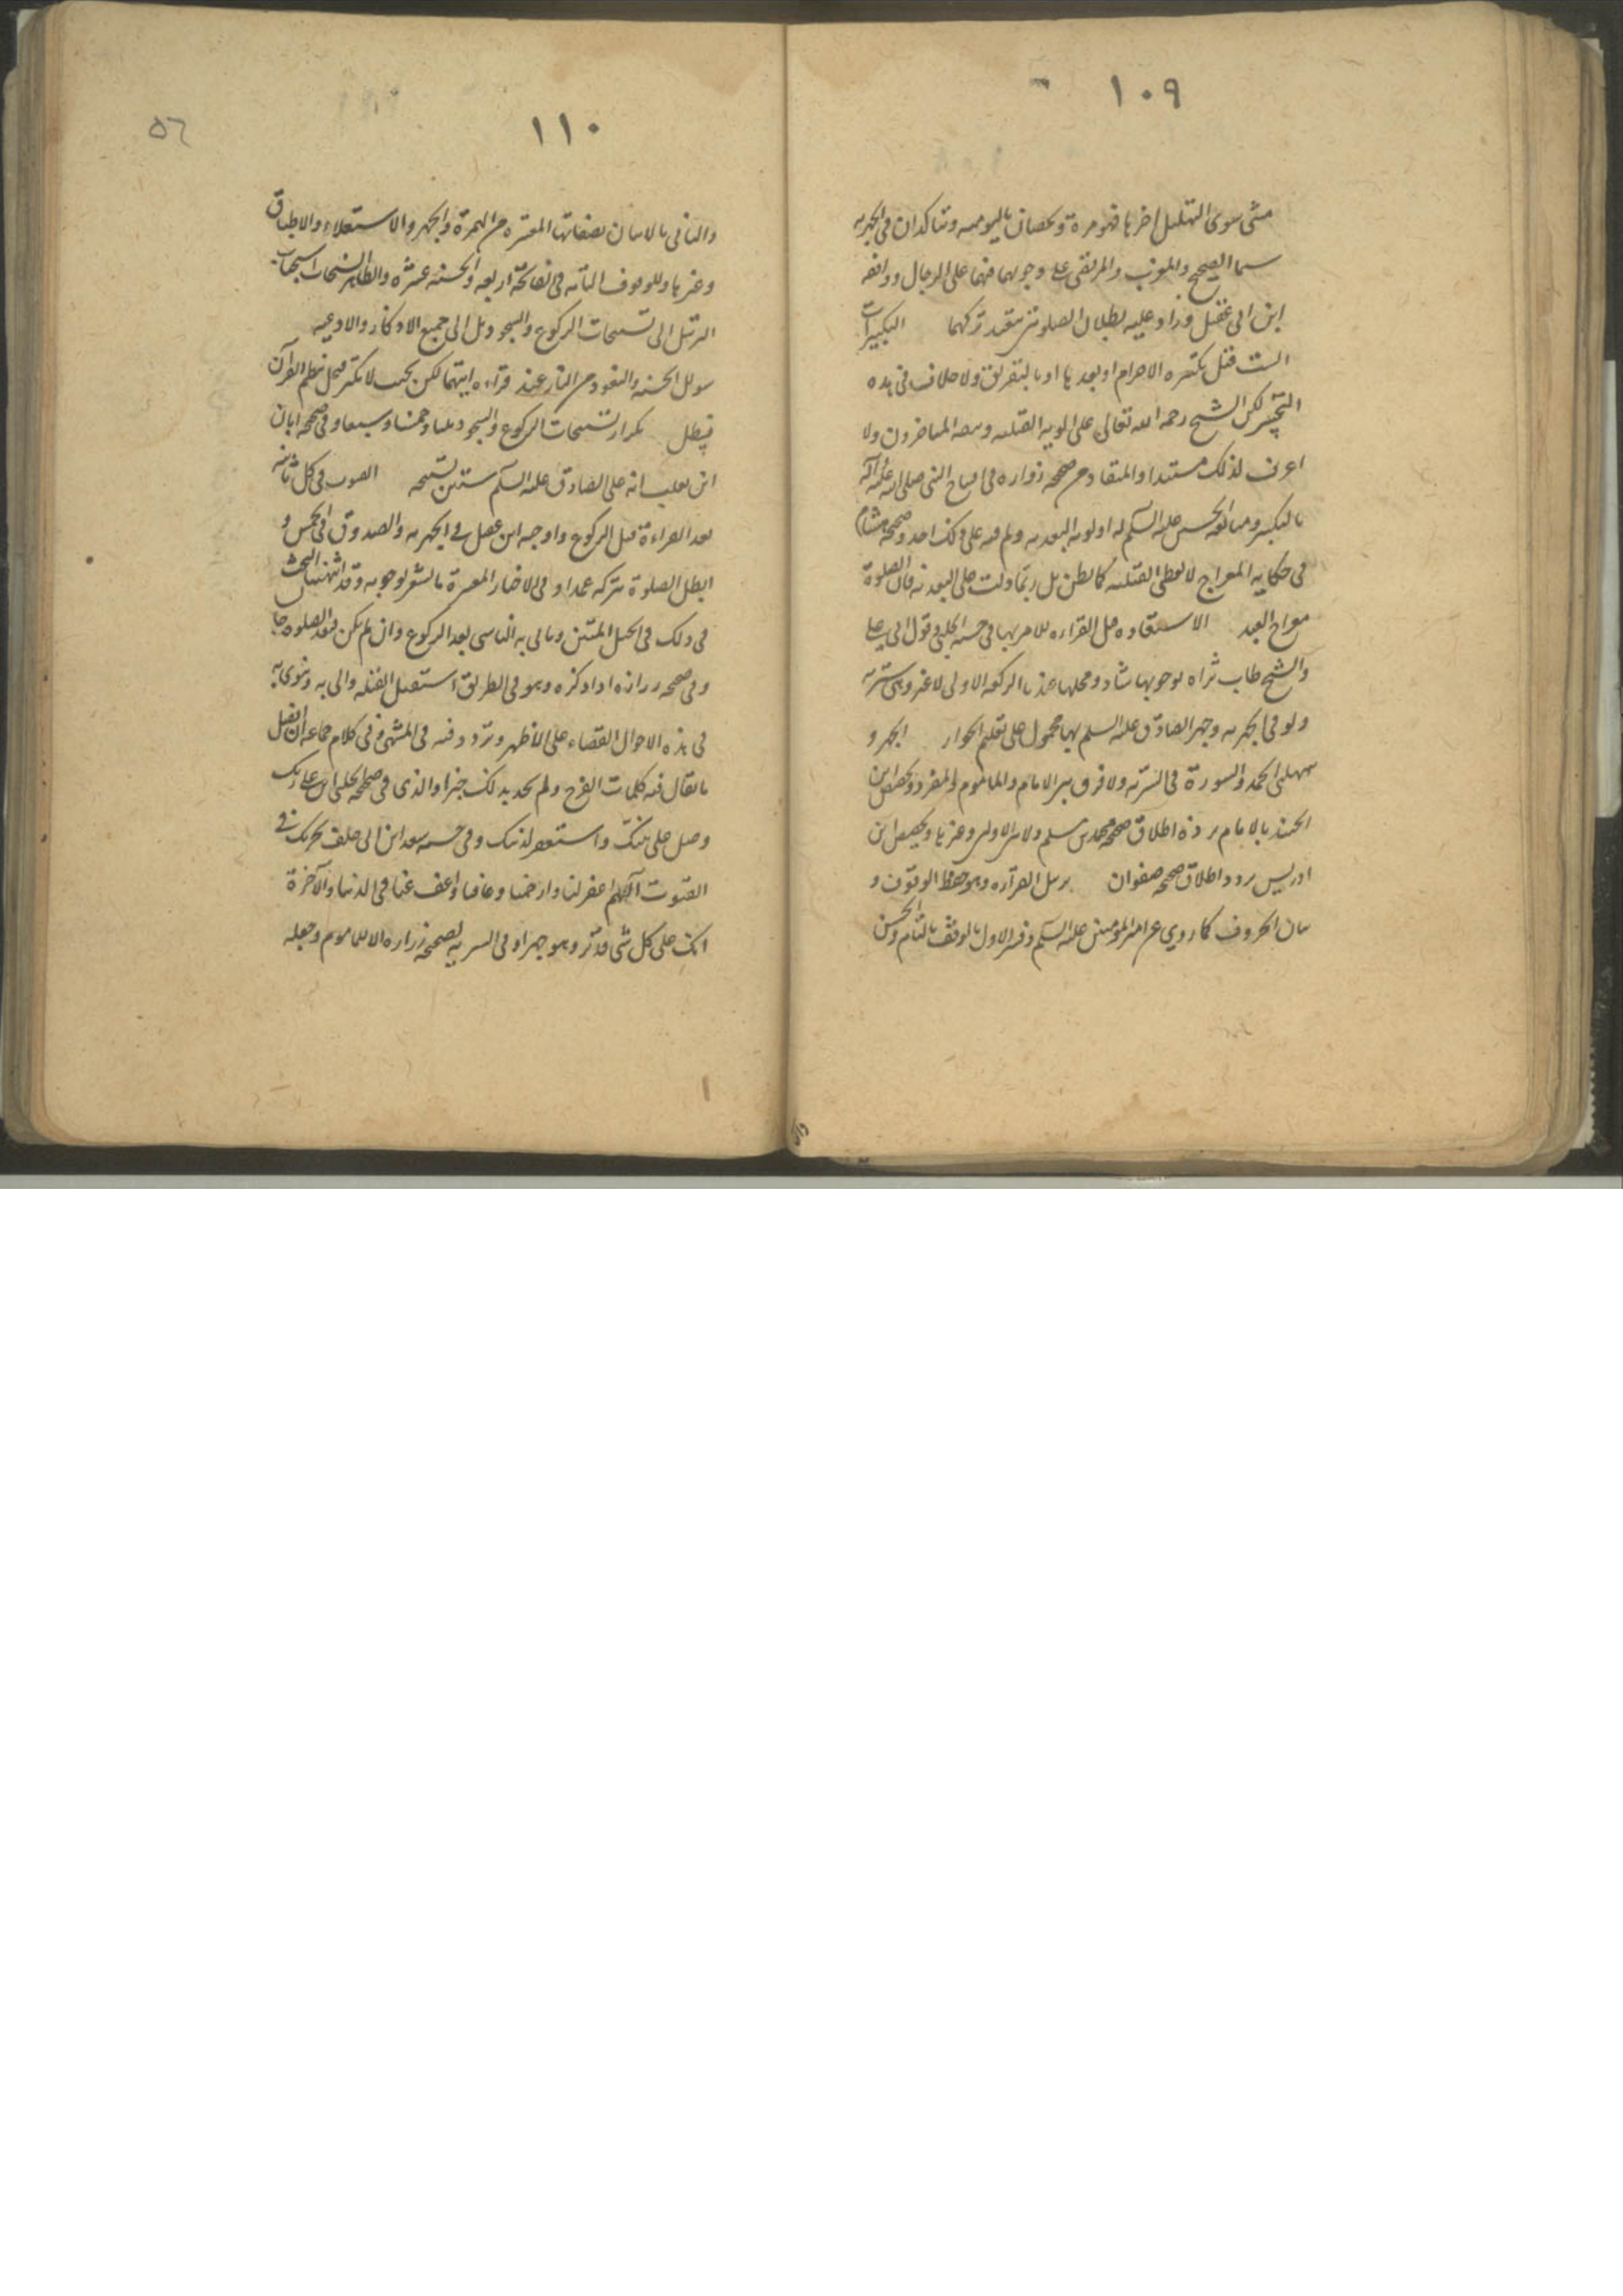 ١٠٩
مثنى سوى التهليل اخرها فهو مرة وتختصان باليومية وتتأكدان في الجهرية
سيما الصبح والمغرب والمرتضى على وجوبهما فيهما على الرجال ووافقه
ابن ابي عقيل وزاد عليه بطلان الصلوة بتعمد تركهما التكبيرات
الست قبل تكبيرة الاحرام او بعدها او بالتفريق ولا خلاف في هذه
التخيير لكن الشيخ رحمه الله تعالى على اولوية القبلية وتبعه المتاخرون ولا
اعرف لذلك مستندا والمستفاد من صحيحة زرارة في افتتاح النبي صلى الله عليه وآله
بالتكبير ومتابعة الحسين عليه السلم له اولوية البعدية ولم ينبه على ذلك احد وصحيحة هشام
في حكاية المعراج لا تعطي القبلية كما يظن بل ربما دلت على البعدية فان الصلوة
معراج العبد الاستعاذة قبل القراءة للامر بها في حسنة الحلبي وقول ابي علي
والشيخ طاب ثراه لوجوبها شاذ ومحلها عندنا الركعة الاولى لا غير وهي سرية
ولو في الجهرية وجهر الصادق عليه السلم بها محمول على تعليم الجواز الجهر و
ببسملتي الحمد والسورة في السرية ولا فرق بين الامام والماموم والمنفرد وتخصيص ابن
الجنيد بالامام يرده اطلاق صحيحة محمد بن مسلم ولا بين الاوليين وغيرها وتخصيص ابن
ادريس يرده اطلاق صحيحة صفوان ترتيل القراءة وهو حفظ الوقوف و
بيان الحروف كما روي عن امير المؤمنين عليه السلم وفسر الاول بالوقف بالتام والحسن
١١٠
٥٦
والثاني بالاتيان بصفاتها المعتبرة من الهمزة والجهر والاستعلاء والاطباق
وغيرها والوقوف التامة في الفاتحة اربعة والحسنة عشرة والظاهر انسحاب استحباب
الترتيل الى تسبيحات الركوع والسجود بل الى جميع الاذكار والادعية
سؤال الجنة والتعوذ من النار عند قراءة ايتيهما لكن بحيث لا يكثر فيخل بنظم القرآن
فيبطل تكرار تسبيحات الركوع والسجود ثلثا وخمسا وسبعا وفي صحيحة ابان
ابن تغلب انه عد على الصادق عليه السلم ستين تسبيحة القنوت في كل ثانية
بعد القراءة قبل الركوع واوجبه ابن عقيل في الجهرية والصدوق في الخمس و
ابطل الصلوة بتركه عمدا وفي الاخبار المعتبرة ما يشعر بوجوبه وقد اشبعنا البحث
في ذلك في الحبل المتين وياتي به الناسي بعد الركوع وان لم يكن فبعد الصلوة جالسا
وفي صحيحة زرارة اذا ذكره وهو في الطريق استقبل القبلة واتى به وينوي به
في هذه الاحوال القضاء على الاظهر وتردد فيه في المنتهى وفي كلام جماعة ان افضل
ما يقال فيه كلمات الفرج ولم نجد بذلك خبرا والذي في صحيحة الحلبي اثن على ربك
وصل على نبيك واستغفر لذنبك وفي حسنة سعد ابن ابي خلف يجزيك في
القنوت اللهم اغفر لنا وارحمنا وعافنا واعف عنا في الدنيا والآخرة
انك على كل شئ قدير وهو جهر او في السرية لصحيحة زرارة الا للماموم وجعله